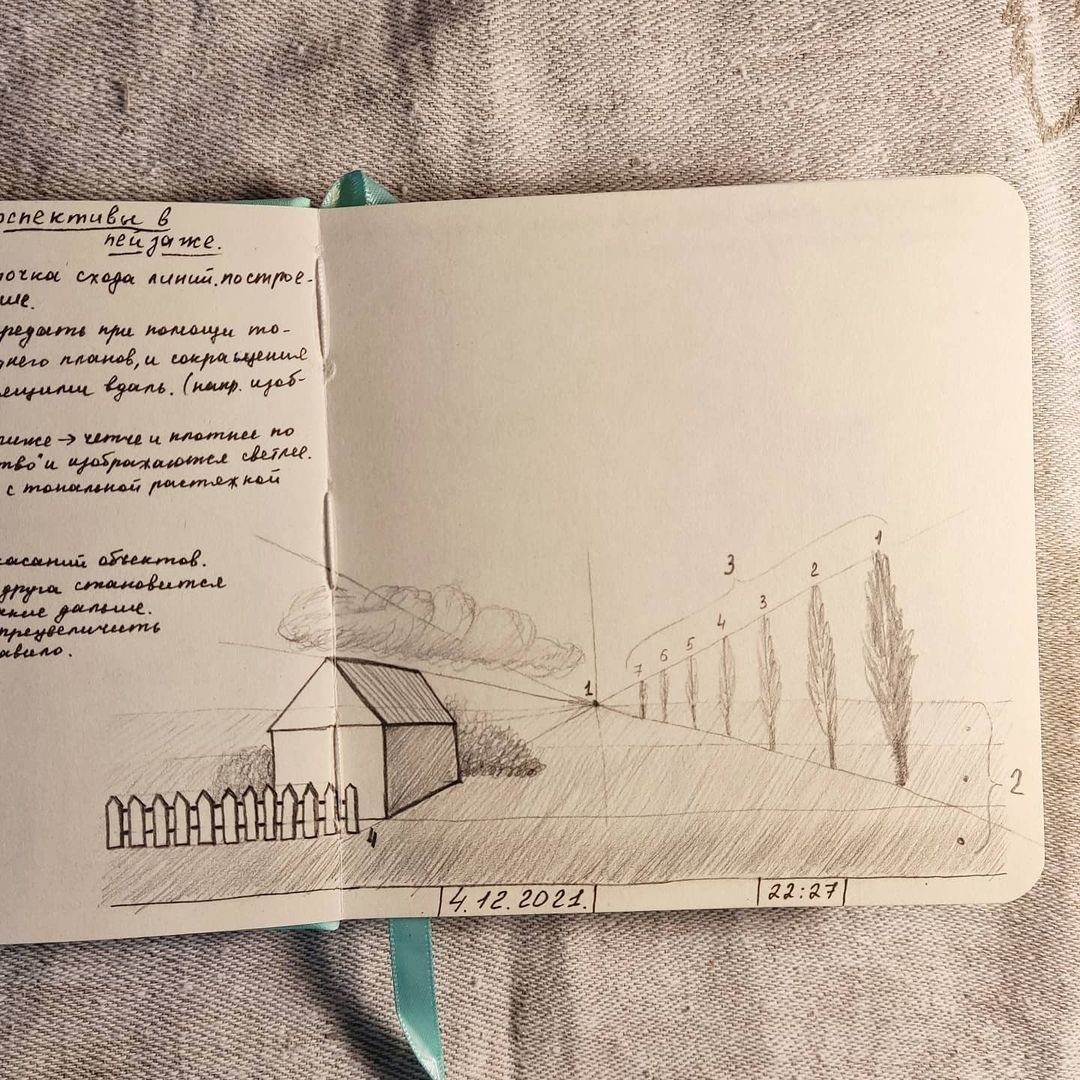 рспективы в
пейзаже.
точка схода линий. построе-
ше.
редать при помощи то-
него планов, и сокращения
ящими вдаль. (напр. изоб-
лиже → четче и плотнее по
тво" и изображаются светлее.
с тональной растяжкой
касаний объектов.
друга становится
дальше.
преувеличить
авило.
3
1
2
3
4
5
6
7
1
2
4
4.12.2021.
22:27